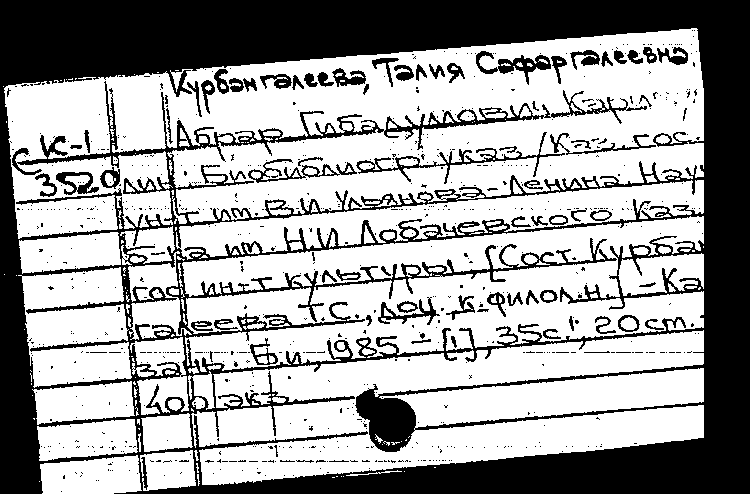 Курбангалеева, Талия Сафаргалеевна.
Абрар Гибадуллович Карим
СК-1
3520
лин: Биобиблиогр. указ. /Каз. гос.
ун-т им. В.И. Ульянова-Ленина. Науч
б-ка им. Н.И. Лобачевского, Каз.
гос. ин-т культуры; [Сост. Курбан
галеева Т.С., доц., к.филол.н.]. - Ка
зань: Б.и., 1985 - [1], 35с.; 20см. -
400 экз.